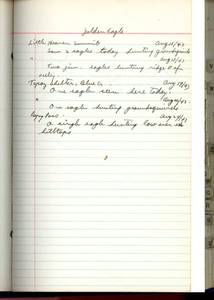 Golden Eagle
Little Heaven Summit Aug 15/43
Saw 2 eagles today hunting groundsquirrels
" Aug 16/43
Two juv. eagles hunting ridge E of
Shelter, Aug 19/43
One eagle seen here today
" Aug 20/43
One eagle hunting groundsquirrels
Pass Aug 24/43
A single eagle hunting low over the
hilltops